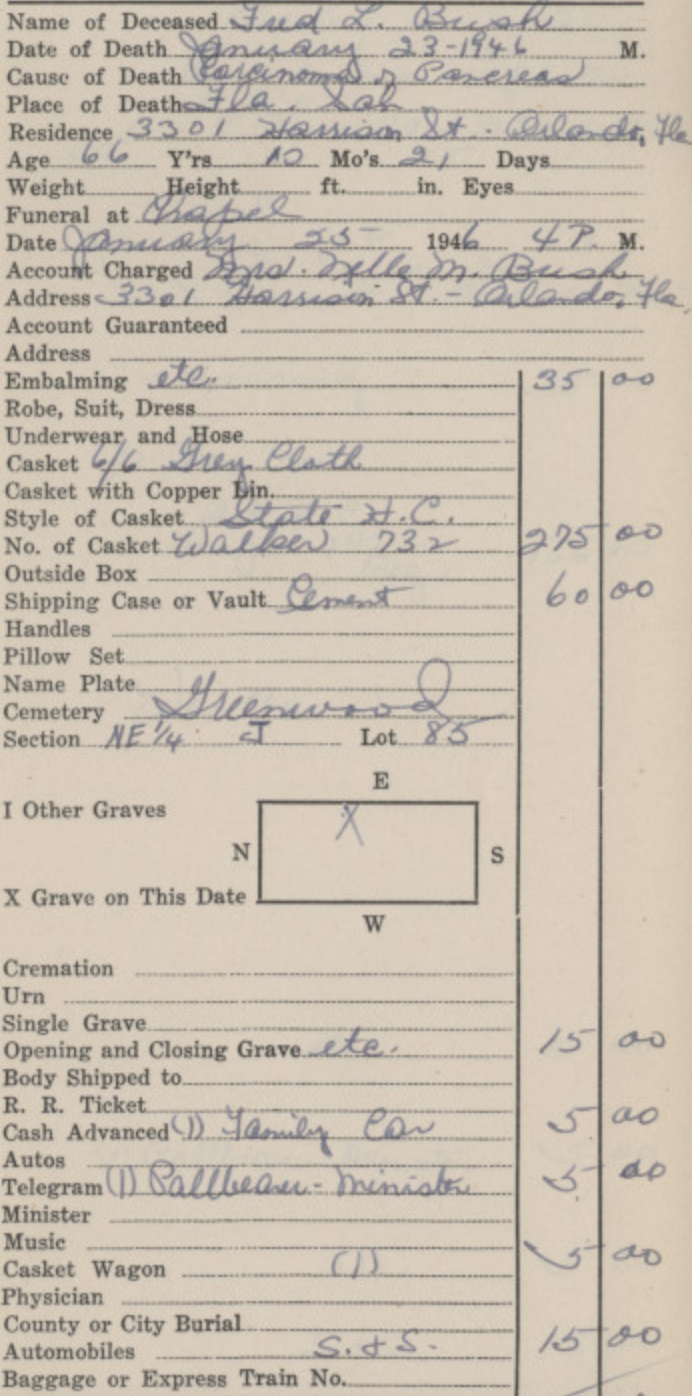 Name of Deceased Fred L. Bush
Date of Death January 23-1946 M.
Cause of Death Carcinoma of Pancreas
Place of Death Fla. San
Residence 3301 Harrison St. - Orlando, Fla
Age 66 Y'rs 10 Mo's 21 Days
Weight Height ft. in. Eyes
Funeral at Chapel
Date January 25 1946 4 P. M.
Account Charged Mrs. Nelle M. Bush
Address 3301 Harrison St. - Orlando, Fla.
Account Guaranteed
Address
Embalming etc. 35 00
Robe, Suit, Dress
Underwear and Hose
Casket 6/6 Grey Cloth
Casket with Copper Lin.
Style of Casket State H.C.
No. of Casket Walker 732 275 00
Outside Box
Shipping Case or Vault Cement 60 00
Handles
Pillow Set
Name Plate
Cemetery Greenwood
Section NE 1/4 J Lot 85
E
I Other Graves
X
N S
X Grave on This Date
W
Cremation
Urn
Single Grave
Opening and Closing Grave etc. 15 00
Body Shipped to
R. R. Ticket
Cash Advanced (1) Family Car 5 00
Autos
Telegram (1) Pallbearer - Minister 5 00
Minister
Music
Casket Wagon (1) 5 00
Physician
County or City Burial
Automobiles S. & S. 15 00
Baggage or Express Train No.